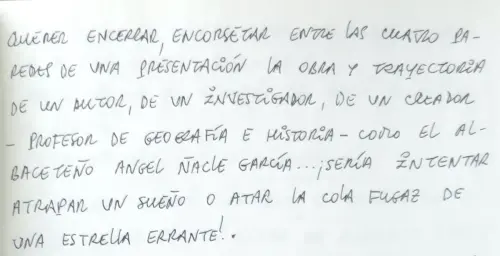 QUERER ENCERRAR, ENCORSETAR ENTRE LAS CUATRO PA-
REDES DE UNA PRESENTACIÓN LA OBRA Y TRAYECTORIA
DE UN AUTOR, DE UN INVESTIGADOR, DE UN CREADOR
- PROFESOR DE GEOGRAFÍA E HISTORIA - COMO EL AL-
BACETEÑO ANGEL ÑACLE GARCÍA...¡SERÍA INTENTAR
ATRAPAR UN SUEÑO O ATAR LA COLA FUGAZ DE
UNA ESTRELLA ERRANTE!.